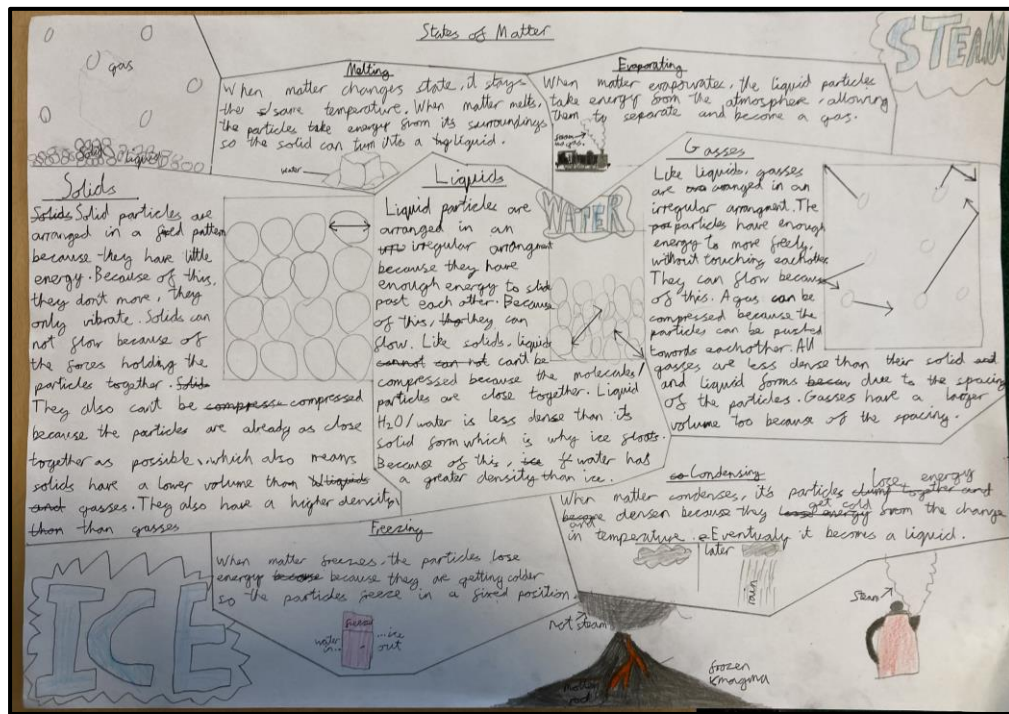 States of Matter
STEAM
gas
Solid
Liquid
Melting
When matter changes state, it stays
the same temperature. When matter melts,
the particles take energy from its surroundings
so the solid can turn into a liquid.
water
Evaporating
When matter evaporates, the liquid particles
take energy from the atmosphere, allowing
them to separate and become a gas.
steam
Solids
Solids Solid particles are
arranged in a fixed pattern
because they have little
energy. Because of this,
they dont move, they
only vibrate. Solids can
not flow because of
the forces holding the
particles together. Solids
They also can't be compresse compressed
because the particles are already as close
together as possible, which also means
solids have a lower volume than liquids
and gasses. They also have a higher density
than than gasses
Liquids
Liquid particles are
arranged in an
irregular arrangment
because they have
enough energy to slide
past each other. Because
of this, they can
flow. Like solids, liquids
cannot can not can't be
compressed because the molecules/
particles are close together. Liquid
H2O/water is less dense than its
solid form which is why ice floats.
Because of this, ice water has
a greater density than ice.
WATER
Gasses
Like liquids, gasses
are arranged in an
irregular arrangment. The
particles have enough
energy to move freely,
without touching eachother
They can flow because
of this. A gas can be
compressed because the
particles can be pushed
towards eachother. All
gasses are less dense than their solid and
and liquid forms becau due to the spacing
of the particles. Gasses have a larger
volume too because of the spacing.
Freezing
When matter freezes, the particles lose
energy because because they are getting colder
so the particles freeze in a fixed position.
freezer
water
in...
...ice
out
ICE
Condensing
lose energy
When matter condenses, it's particles clump together and
get cold
become denser because they lose energy from the change
and
in temperature. Eventualy it becomes a liquid.
later
rain
not steam
molten
rock
frozen
magma
Steam